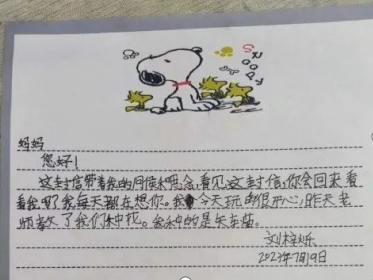 SNOOPY
妈妈
您好！
这封信带着我的问候和思念，看见这封信，你会回来看
看我吗？我每天都在想你。我今天玩的很开心，昨天老
师教了我们种花。我种的是矢车菊。
刘梓烁
2023年7月19日